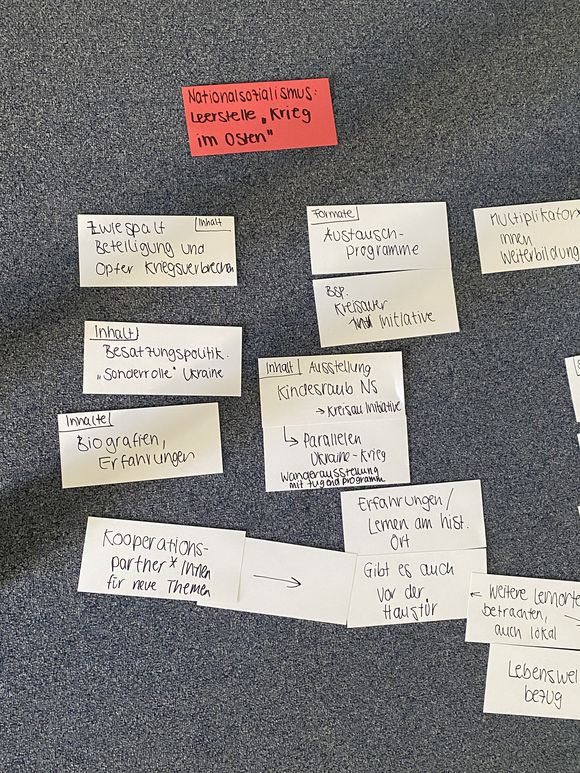 Nationalsozialismus:
Leerstelle „Krieg
im Osten"
Zwiespalt
Inhalt
Beteiligung und
Opfer Kriegsverbrechen
Formate
Austausch-
programme
Multiplikator*
innen
Weiterbildung
Bsp.
Kreisauer
Initiative
Inhalt
Besatzungspolitik.
„Sonderrolle" Ukraine
Inhalt Ausstellung
Kindesraub NS
→ Kreisau Initiative
↳ Parallelen
Ukraine-Krieg
Wanderausstellung
mit Jugendprogramm
Inhalte
Biografien,
Erfahrungen
Erfahrungen/
Lernen am hist.
Ort
Kooperations-
partner*innen
für neue Themen
→
Gibt es auch
vor der
Haustür
← Weitere Lernorte
betrachten,
auch lokal
Lebenswel
bezug